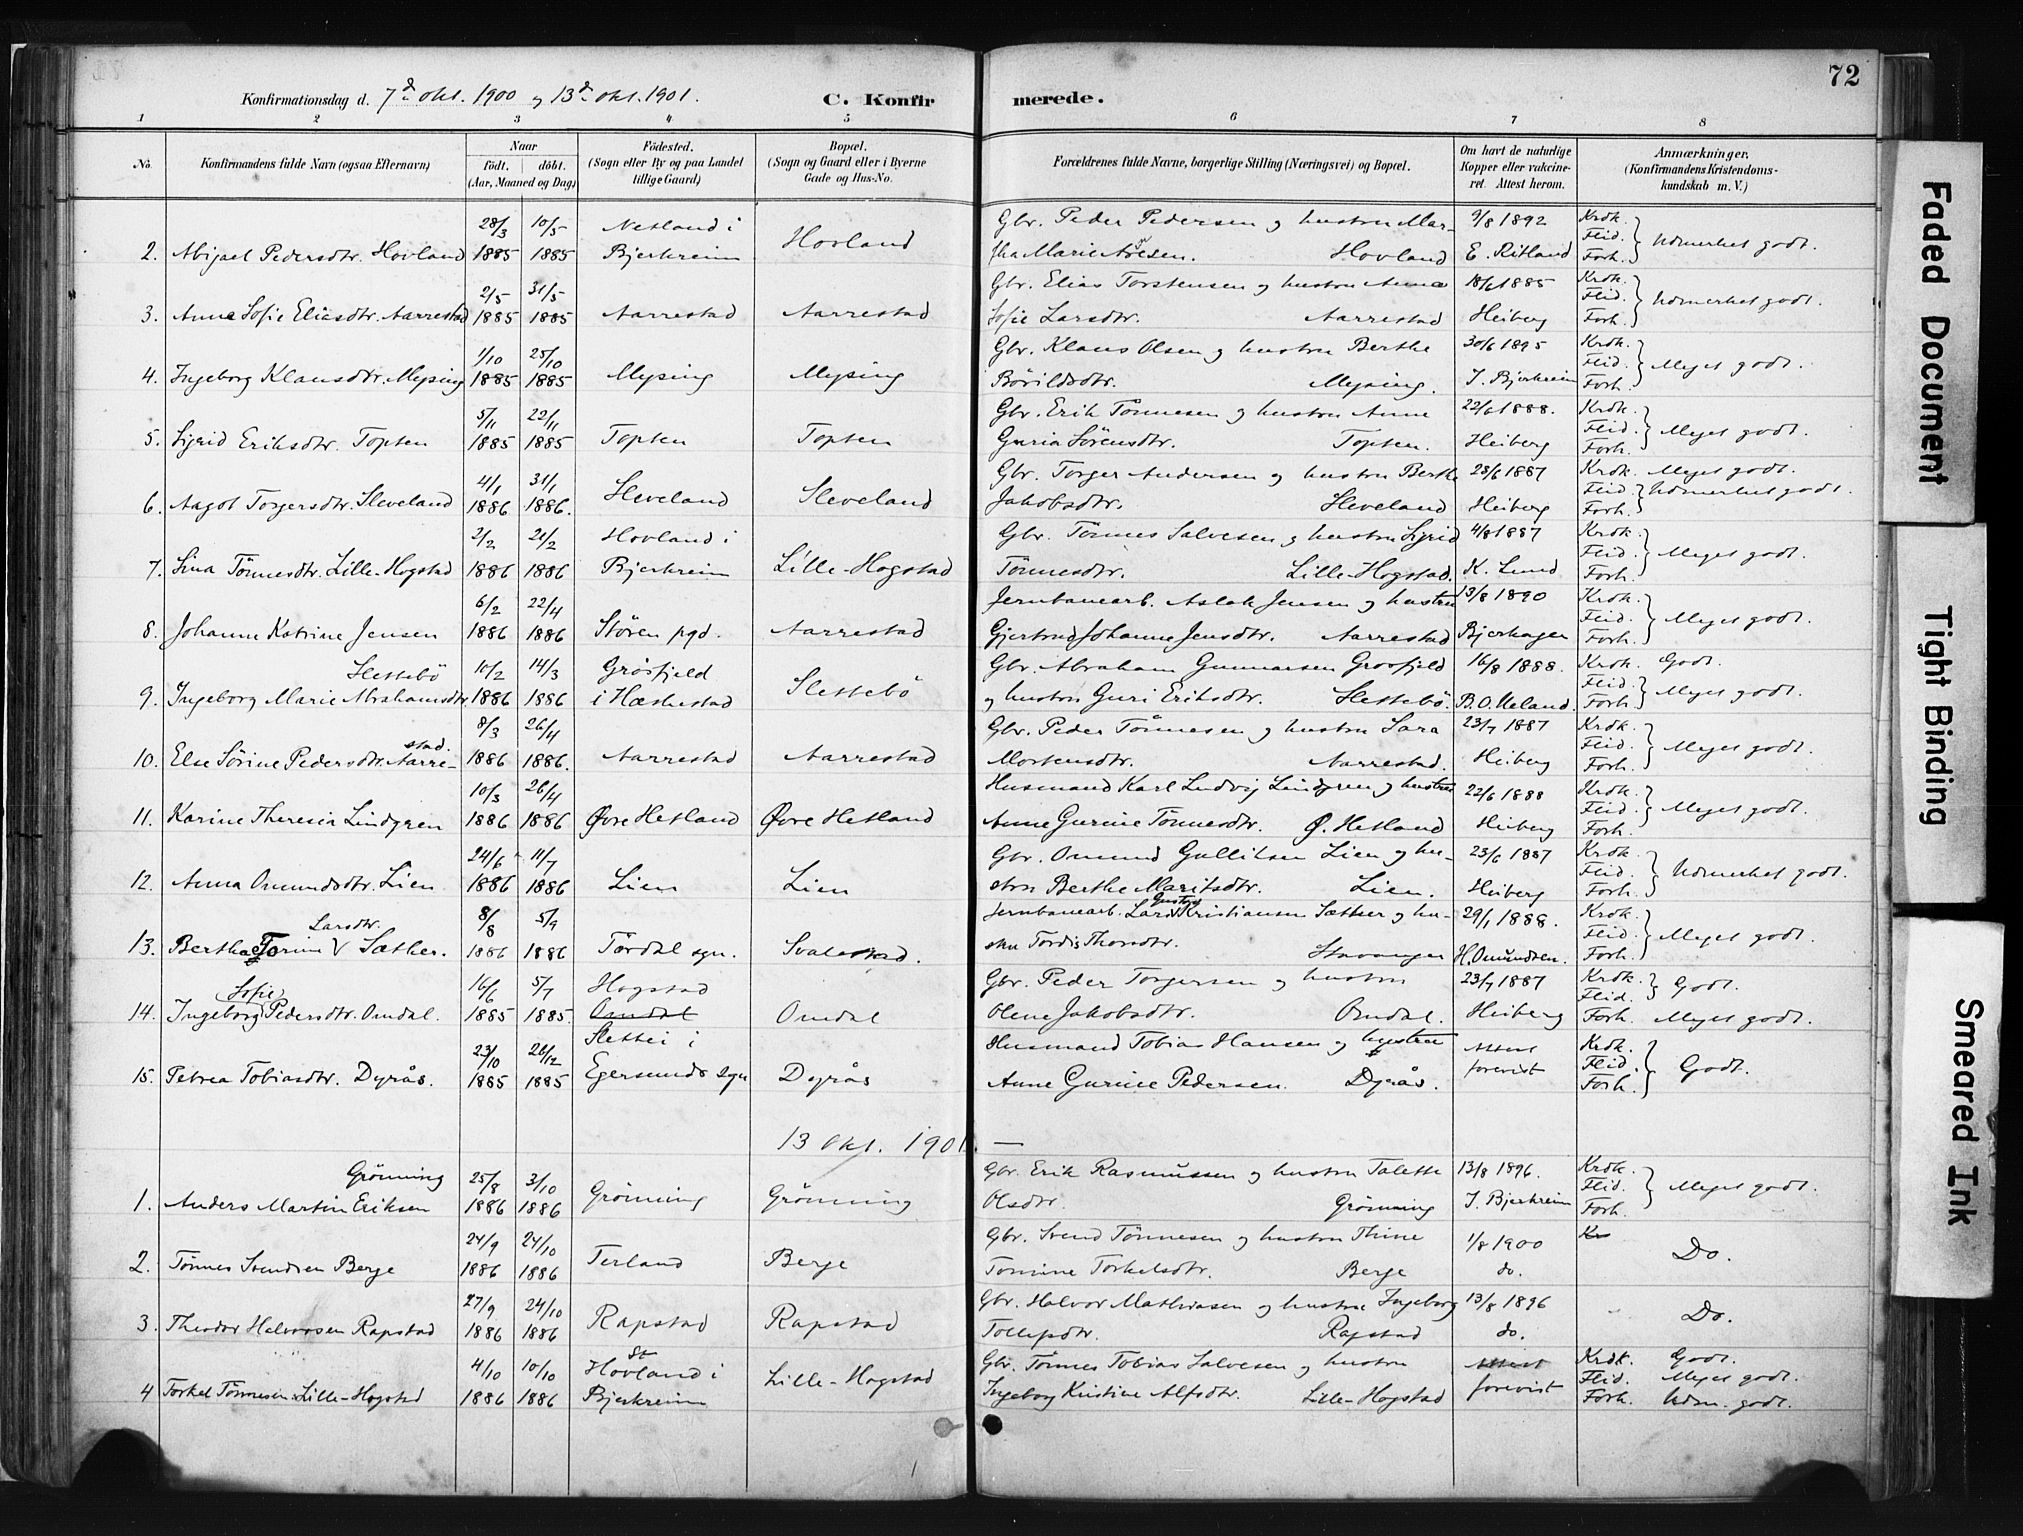 72
Konfirmationsdag d. 7de Okt. 1900 og 13de Okt. 1901.
C. Konfirmerede.
1 2 3 4 5 6 7 8
No.
Konfirmandens fulde Navn (ogsaa Efternavn)
Naar født. døbt. (Aar, Maaned og Dag)
Fødested. (Sogn eller By og paa Landet tillige Gaard)
Bopæl. (Sogn og Gaard eller i Byerne Gade og Hus-No.
Forældrenes fulde Navne, borgerlige Stilling (Næringsvei) og Bopæl.
Om havt de naturlige Kopper eller vakcineret. Attest herom.
Anmærkninger. (Konfirmandens Kristendomskundskab m. V.)
28/3 10/5 Netland i Gbr. Peder Pedersen og hustru Mar- 9/8 1892 Krdk.
2. Abigael Pedersdtr. Hovland 1885 1885 Bjerkreim Hovland tha Marie Hovland E. Ritland Flid. Forh. Udmerket godt.
2/5 31/5 Gbr. Elias Torstensen og hustru Anna 18/6 1885 Krdk.
3. Anna Sofie Eliasdtr. Aarrestad 1885 1885 Aarrestad Aarrestad Sofie Larsdtr. Aarrestad Heiberg Flid. Forh. Udmerket godt.
1/10 25/10 Gbr. Klaus Olsen og hustru Berthe 30/6 1895 Krdk.
4. Ingeborg Klausdtr. Mysing 1885 1885 Mysing Mysing Børildsdtr. Mysing. I. Bjerkreim Flid. Forh. Meget godt.
5/11 22/11 Gbr. Erik Tønnesen og hustru Anne 22/6 1888. Krdk.
5. Sigrid Eriksdtr. Topten 1885 1885 Topten Topten Guria Sørensdtr. Topten. Heiberg Flid. Forh. Meget godt.
4/1 31/1 Gbr. Torger Andersen og hustru Berthe 28/6 1887 Krdk. Meget godt.
6. Aagot Torgersdtr. Sleveland 1886 1886. Sleveland Sleveland Jakobsdtr. Sleveland Heiberg Flid. Forh. Udmerket godt.
2/2 21/2 Hovland i Gbr. Tønnes Salvesen og hustru Sigrid 4/8 1887 Krdk.
7. Sina Tønnesdtr. Lille-Hogstad 1886 1886 Bjerkreim Lille-Hogstad Tønnesdtr. Lille-Hogstad. K. Lund Flid. Forh. Meget godt.
6/2 22/4 Jernbanearb. Aslak Jensen og hustru 13/8 1890 Krdk.
8. Johanne Katrine Jensen 1886 1886 Støren pgd. Aarrestad Gjertrud Johanne Jensdtr. Aarrestad Bjerhagen Flid. Forh. Meget godt.
Slettebö 10/2 14/3 Grösfjeld Gbr. Abraham Gunnarsen Grosfjeld 16/8 1888. Krdk. Godt.
9. Ingeborg Marie Abrahamsdtr. 1886 1886 i Hæskestad Slettebö og hustru Guri Eriksdtr. Slettebö. B. O. Ueland. Flid. Forh. Meget godt.
8/3 26/4 Gbr. Peder Tønnesen og hustru Sara 23/7 1887 Krdk.
10. Else Sørine Pedersdtr. Aarrestad. 1886 1886. Aarrestad Aarrestad Mortensdtr. Aarrestad. Heiberg Flid. Forh. Meget godt.
10/3 26/4 Husmand Karl Ludvig Lindgren og hustru 22/6 1888 Krdk.
11. Karine Theresia Lindgren 1886 1886 Øvre Hetland Øvre Hetland Anne Gurine Tønnesdtr. Ø. Hetland Heiberg Flid. Forh. Meget godt.
24/6 11/7 Gbr. Omund Gullitsen Lien og hu- 23/6 1887 Krdk.
12. Anna Omundsdtr. Lien 1886 1886 Lien Lien stru Berthe Maritsdtr. Lien. Heiberg Flid. Forh. Udmerket godt.
Larsdtr. 8/8 5/9 Jernbanearb. Lars Gustav Kristiansen Sæther og hu- 29/1 1888. Krdk.
13. Bertha Torine Sæther. 1886 1886 Tørdal sgn. Svalestad. stru Tordis Thorsdtr. Stavanger H. Omundsen. Flid. Forh. Meget godt.
Sofie 16/6 5/7 Hogstad Gbr. Peder Torgersen og hustru 23/7 1887 Krdk. Flid. Godt.
14. Ingeborg Pedersdtr. Omdal. 1885 1885. Omdal Omdal Olene Jakobsdtr. Omdal. Heiberg Forh. Meget godt.
23/10 26/12 Slettei i Husmand Tobias Hansen og hustru Attest Krdk.
15. Petrea Tobiasdtr. Dyrås. 1885 1885 Egersunds sgn Dyrås Anne Gurine Pedersen. Dyrås. forevist Flid. Forh. Godt.
13 Okt. 1901. —
Grönning 25/8 3/10 Gbr. Erik Rasmussen og hustru Talette 13/8 1896. Krdk.
1. Anders Martin Eriksen 1886 1886 Grönning Grönning Olsdtr. Grönning I. Bjerkreim Flid. Forh. Meget godt.
24/9 24/10 Gbr. Svend Tönnesen og hustru Thine 1/8 1900 Kr
2. Tönnes Svendsen Berge 1886 1886 Terland Berge Tomine Torkelsdtr. Berge do. Do.
27/9 24/10 Gbr. Halvor Mathiasen og hustru Ingeborg 13/8 1896
3. Theodor Halvorsen Rapstad 1886 1886 Rapstad Rapstad Tollefsdtr. Rapstad do. Do.
4/10 10/10 St Hovland i Gbr. Tönnes Tobias Salvesen og hustru Attest Krdk. Godt.
4 Torkel Tönnesen Lille-Hogstad 1886 1886 Bjerkreim Lille-Hogstad Ingeborg Kristine Alfsdtr. Lille-Hogstad forevist Flid. Meget godt. Forh. Udm. godt.
Faded Document
Tight Binding
Smeared Ink